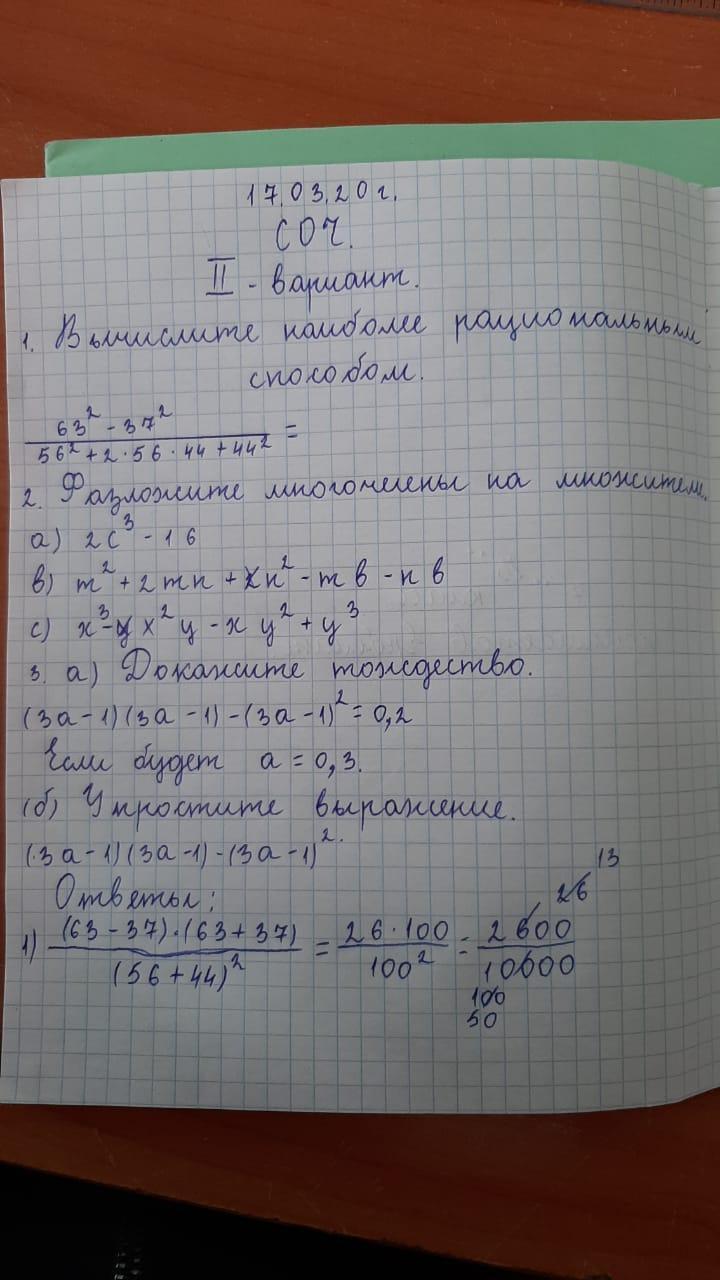 17.03.20г.
СОЧ.
II - вариант.
1. Вычислите наиболее рациональным
способом.
63² - 37² / 56² + 2·56·44 + 44² =
2. Разложите многочлены на множители.
а) 2с³ - 16
в) m² + 2mn + n² - mв - nв
с) x³ - x²y - xy² + y³
3. а) Докажите тождество.
(3а-1)(3а-1)-(3а-1)² = 0,2
Если будет а = 0,3.
(б) Упростите выражение.
(3а-1)(3а-1)-(3а-1)².
Ответы:
13
26
1) (63-37)·(63+37) / (56+44)² = 26·100 / 100² = 2600 / 10000
100
50